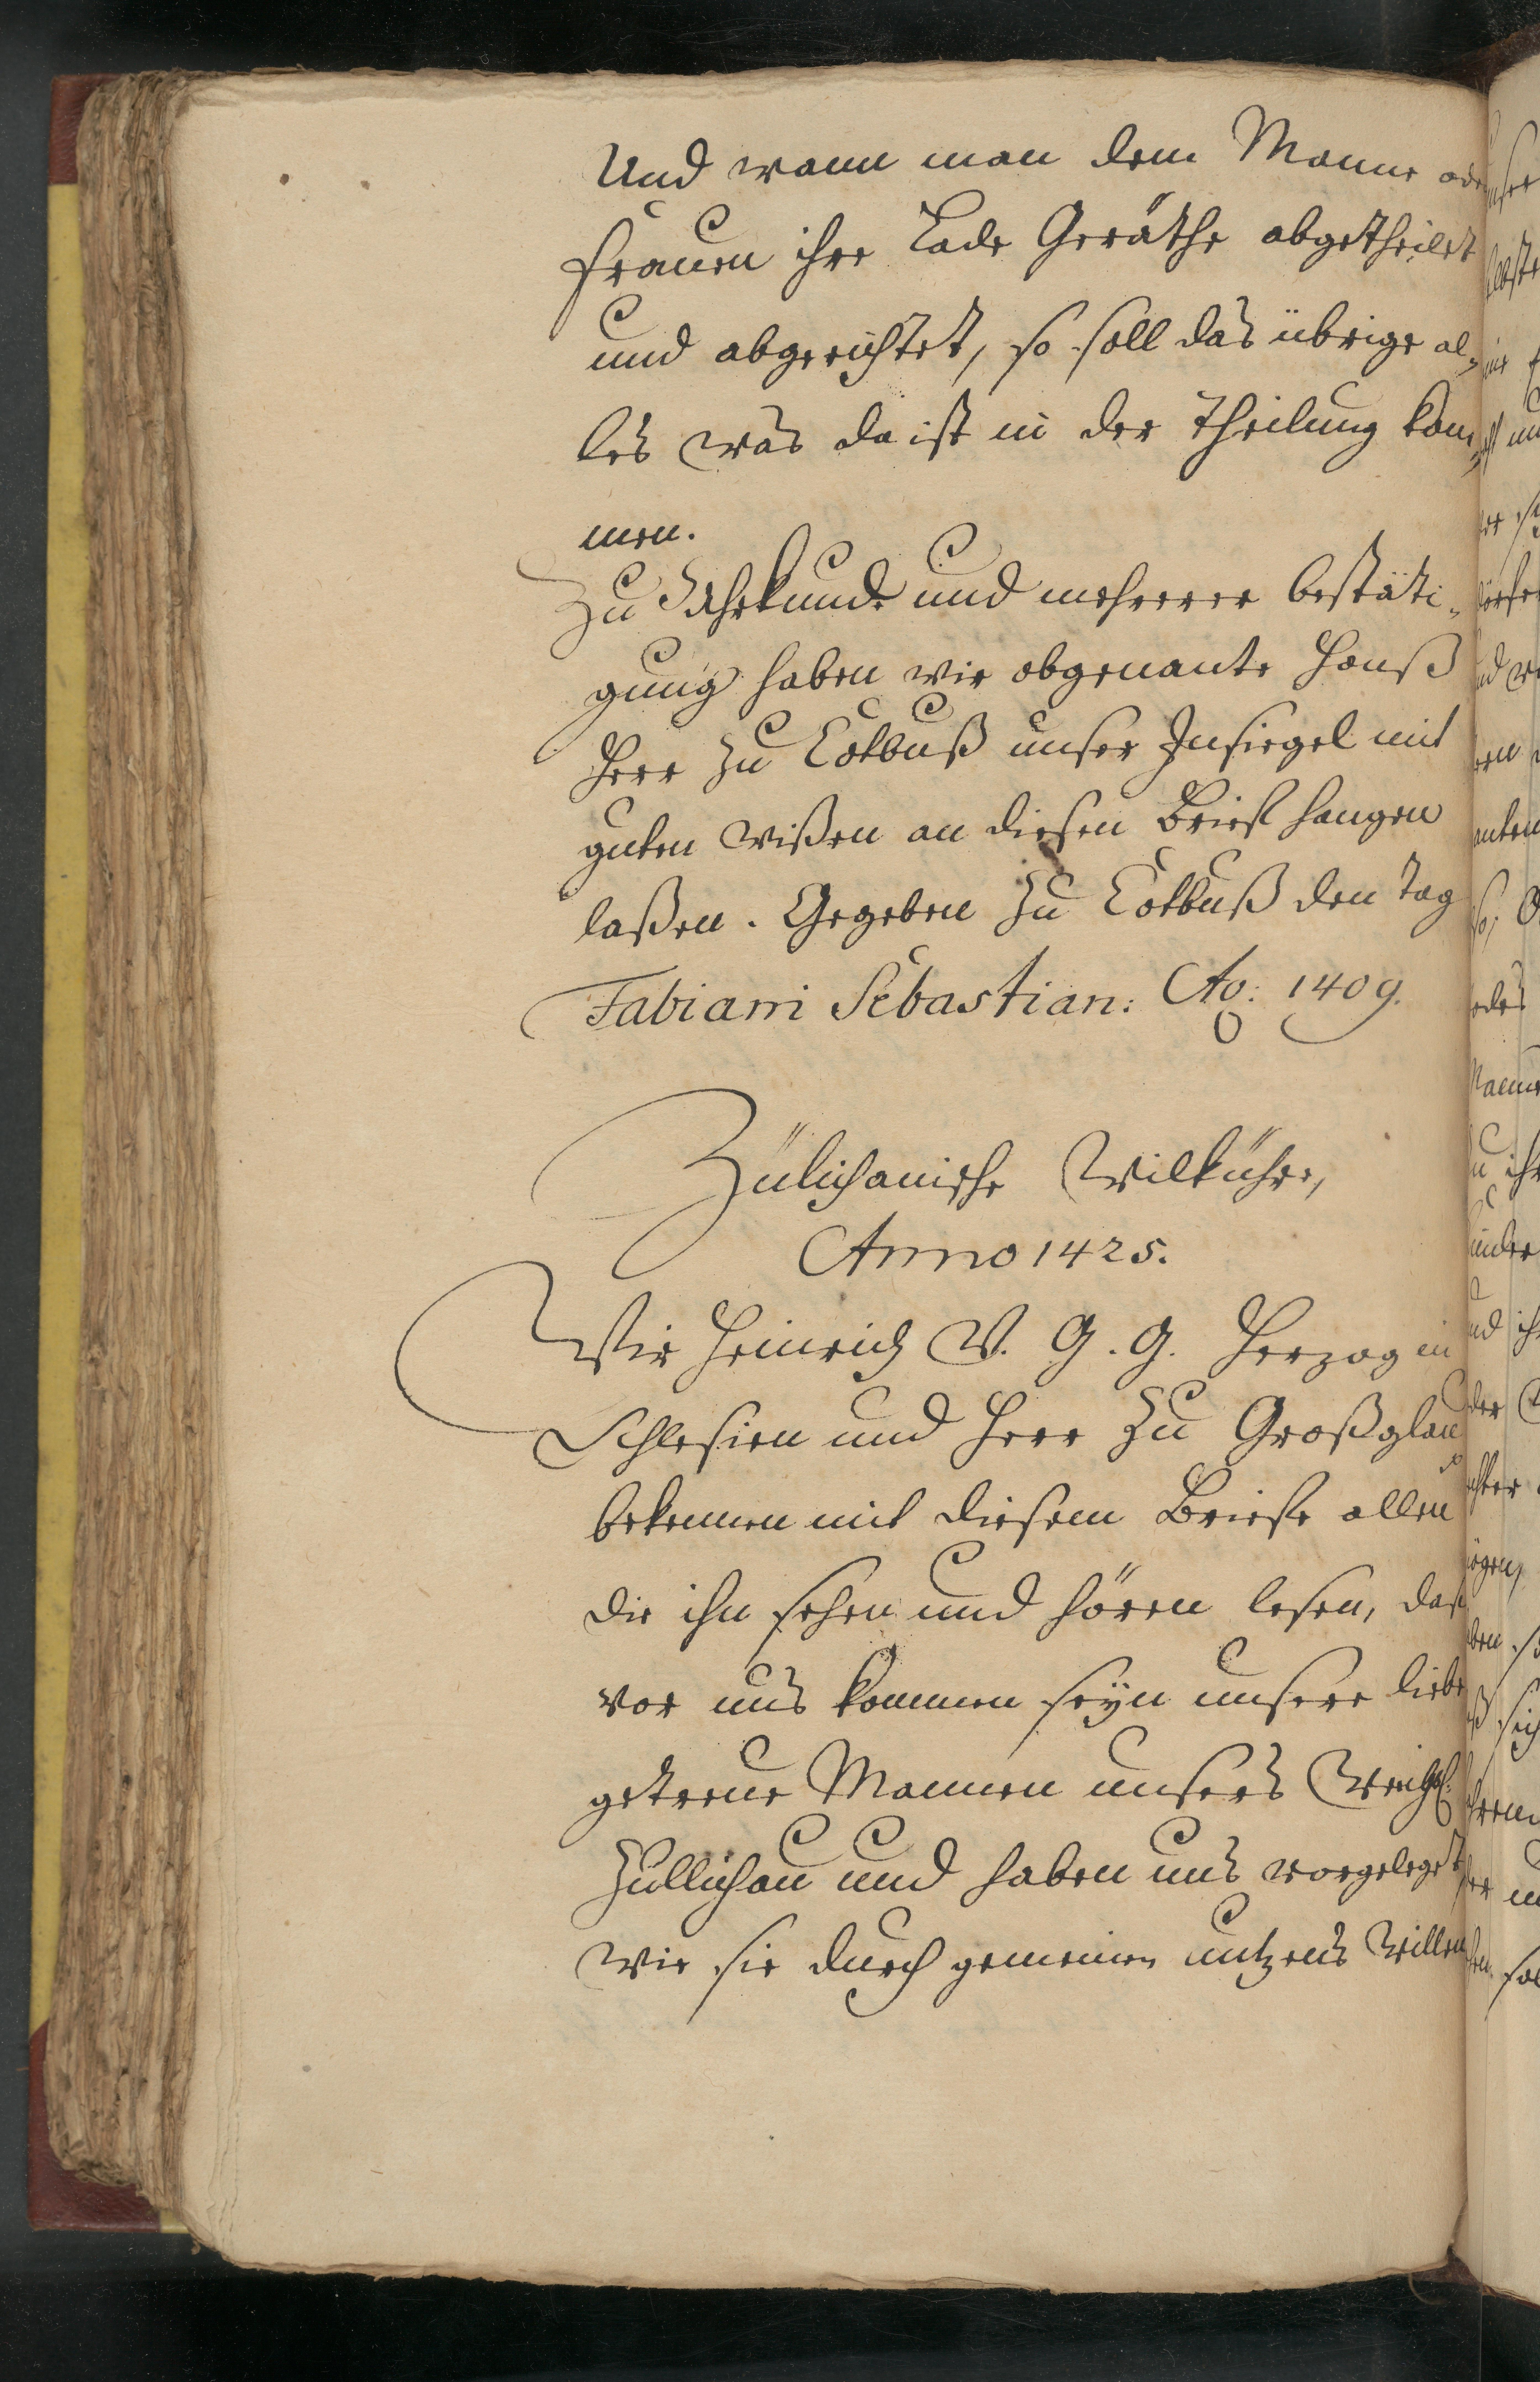 Und wann man dem Manne oder
Frauen ihre Lade Geräthe abgetheilet
und abgerichtet, so soll das übrige al-
les was da ist in der Theilung kom-
men.
Zu Uhrkunde und mehrerer bestäti-
gung haben wir obgenante Hanß
Herr zu Cotbuß unser Insiegel mit
guten wißen an diesen Brief hangen
laßen. Gegeben zu Cotbuß den Tag
Fabiani Sebastian: Ao: 1409.
Zülichauische Wilkühre,
Anno 1425.
Wir Heinrich V. G. G. Herzog in
Schlesien und Herr zu Großglau
bekennen mit diesem Briefe allen
die ihn sehen und hören lesen, daß
vor uns kommen seyn unsere liebe
getreue Mannen unsers Weichb.
Züllichau und haben uns vorgeleget
wie sie durch gemeinen nutzens willen